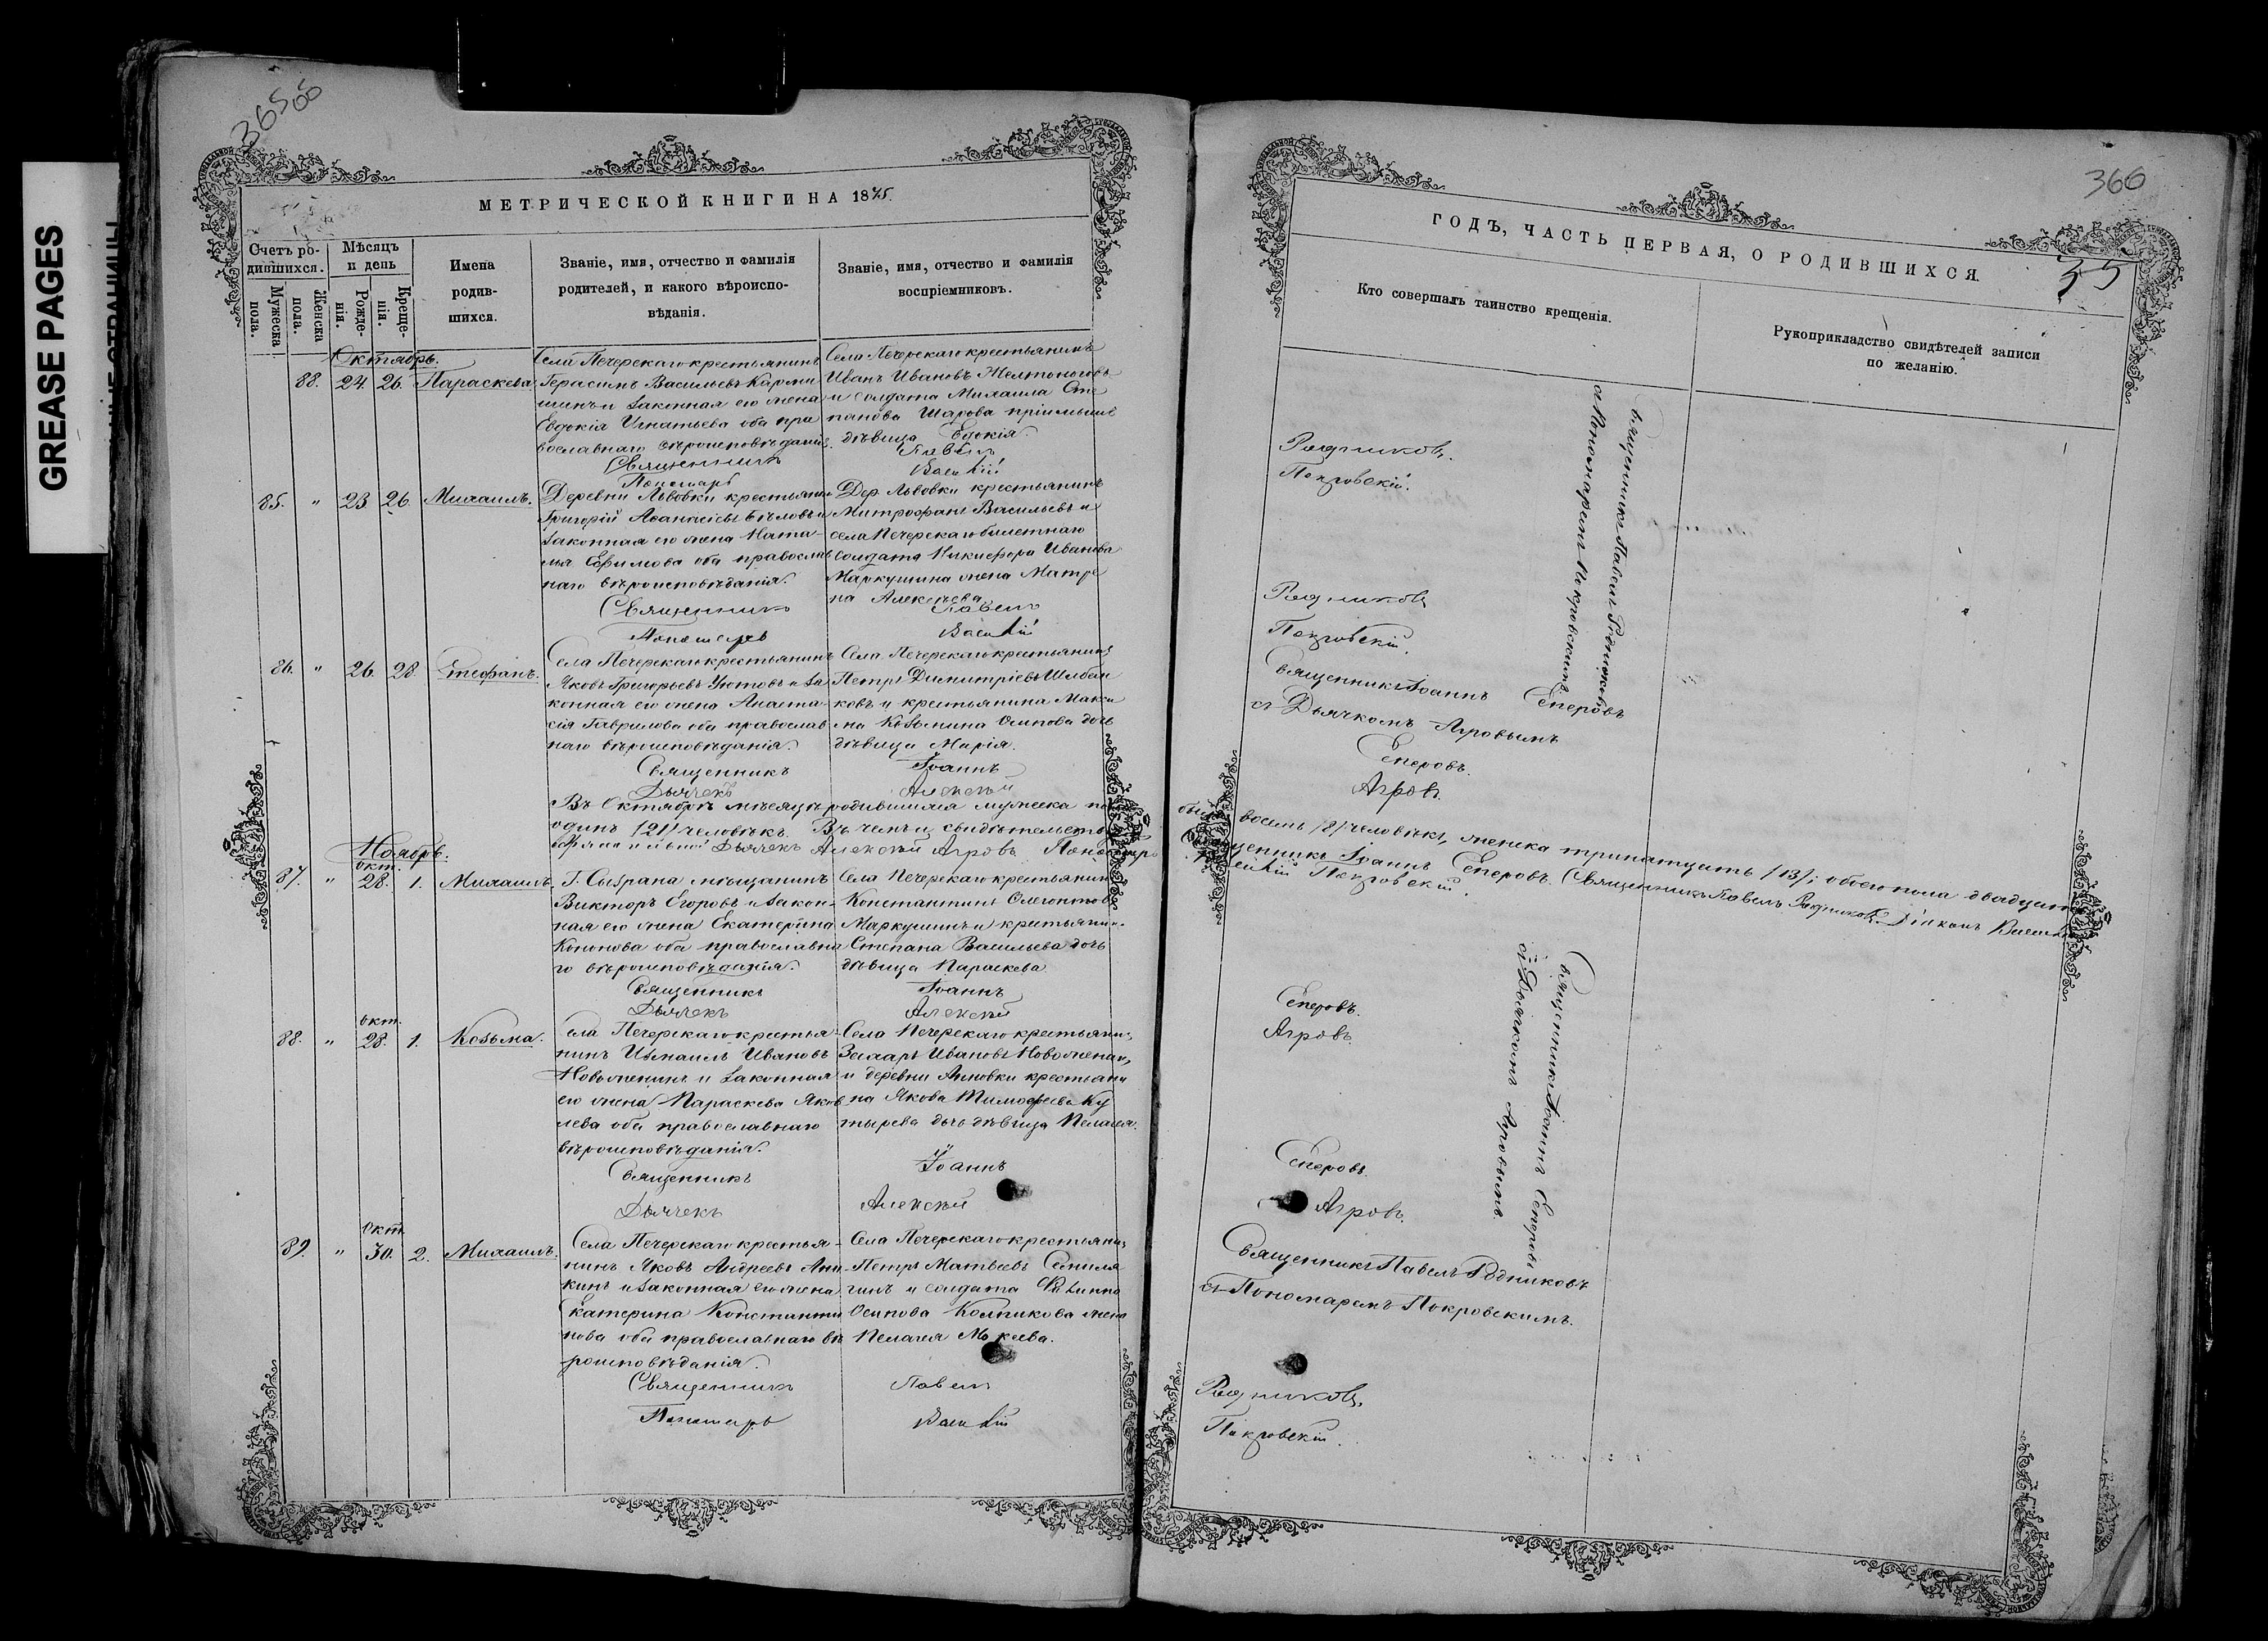 GREASE PAGES
36505
МЕТРИЧЕСКОЙ КНИГИ НА 1875.
Счетъ ро-
дившихся.
Мужеска
пола.
Женска
пола.
Мѣсяцъ
и день
Рожде-
нія.
Креще-
нія.
Имена
родив-
шихся.
Званіе, имя, отчество и фамилія
родителей, и какого вѣроиспо-
вѣданія.
Званіе, имя, отчество и фамилія
воспріемниковъ.
Октябрь.
88. 24. 26. Параскева.
Села Печерскаго крестьянинъ
Герасимъ Васильевъ
и законная его жена
Евдокія Игнатьева оба пра
вославнаго вѣроисповѣданія.
Священникъ
Пономарь
Села Печерскаго крестьянинъ
Иванъ Ивановъ Желтоноговъ
и солдата Михаила Сте
панова Шарова пріимышъ
дѣвица Евдокія.
Павелъ
Василій
85. " 23. 26. Михаилъ.
Деревни Львовки крестьянин
Григорій Аѳанасіевъ Бѣловъ и
законная его жена Ната-
лья Ефимова оба православ
наго вѣроисповѣданія.
Священникъ
Пономарь
Дер. Львовки крестьянинъ
Митрофанъ Васильевъ и
села Печерскаго билетнаго
солдата Никифора Иванова
Маркушина жена Матре
на Алексѣева
Павелъ
Василій
86. " 26. 28. Стефанъ.
Села Печерскаго крестьянинъ
Яковъ Григорьевъ Уютовъ и за
конная его жена Анаста-
сія Гаврилова оба православ
наго вѣроисповѣданія.
Священникъ
Дьячекъ
Села Печерскаго крестьянинъ
Петръ Димитріевъ
ковъ и крестьянина Макси
ма Козьмина Осипова дочь
дѣвица Марія.
Іоаннъ
Алексѣй
Въ Октябрѣ мѣсяцѣ родившихся мужеска по
одинъ /21/ человѣкъ. Въ чемъ и свидѣтельст
Дьячекъ Алексѣй Агровъ Пономарь
Ноябрь.
87. " окт. 28. 1. Михаилъ.
Г. Сызрана мѣщанинъ
Викторъ Егоровъ и закон-
ная его жена Екатерина
Кононова оба православна
го вѣроисповѣданія.
Священникъ
Дьячекъ
Села Печерскаго крестьянин
Константинъ
Маркушинъ и крестьянин
Степана Васильева дочь
дѣвица Параскева
Іоаннъ
Алексѣй
88. " окт. 28. 1. Козьма.
Села Печерскаго крестья-
нинъ Измаилъ Ивановъ
Новоженинъ и законная
его жена Параскева Яков
лева оба православнаго
вѣроисповѣданія.
Священникъ
Дьячекъ
Села Печерскаго крестьяни
Захаръ Ивановъ Новоженин
и деревни Анновки крестьяни
на Якова Тимофеева Ку
тырева дочь дѣвица Пелагея.
Іоаннъ
Алексѣй
89. " окт. 30. 2. Михаилъ.
Села Печерскаго крестья-
нинъ Яковъ Андреевъ Ани-
кинъ и законная его жена
Екатерина Константи
нова оба православнаго вѣ
роисповѣданія.
Священникъ
Пономарь
Села Печерскаго крестьяни
Петръ Матвеевъ
гинъ и солдата Филиппа
Осипова Колпикова жена
Пелагея Мокеева.
Павелъ
Василій
366
35
ГОДЪ, ЧАСТЬ ПЕРВАЯ, О РОДИВШИХСЯ.
Кто совершалъ таинство крещенія.
Рукоприкладство свидѣтелей записи
по желанію.
Священникъ Павелъ Родниковъ
съ Пономаремъ Покровскимъ
Родниковъ.
Покровскій.
Родниковъ
Покровскій.
Священникъ Іоаннъ Сперовъ
съ Дьячкомъ Агровымъ
Сперовъ.
Агровъ.
восемь /8/ человѣкъ, женска тринатцать /13/; обоего пола двадцать
Священникъ Іоаннъ Сперовъ. Священникъ Павелъ Родниковъ. Діаконъ
Покровскій.
Священникъ Іоаннъ Сперовъ
съ Дьячкомъ Агровымъ.
Сперовъ.
Агровъ.
Сперовъ.
Агровъ.
Священникъ Павелъ Родниковъ
съ Пономаремъ Покровскимъ.
Родниковъ.
Покровскій.